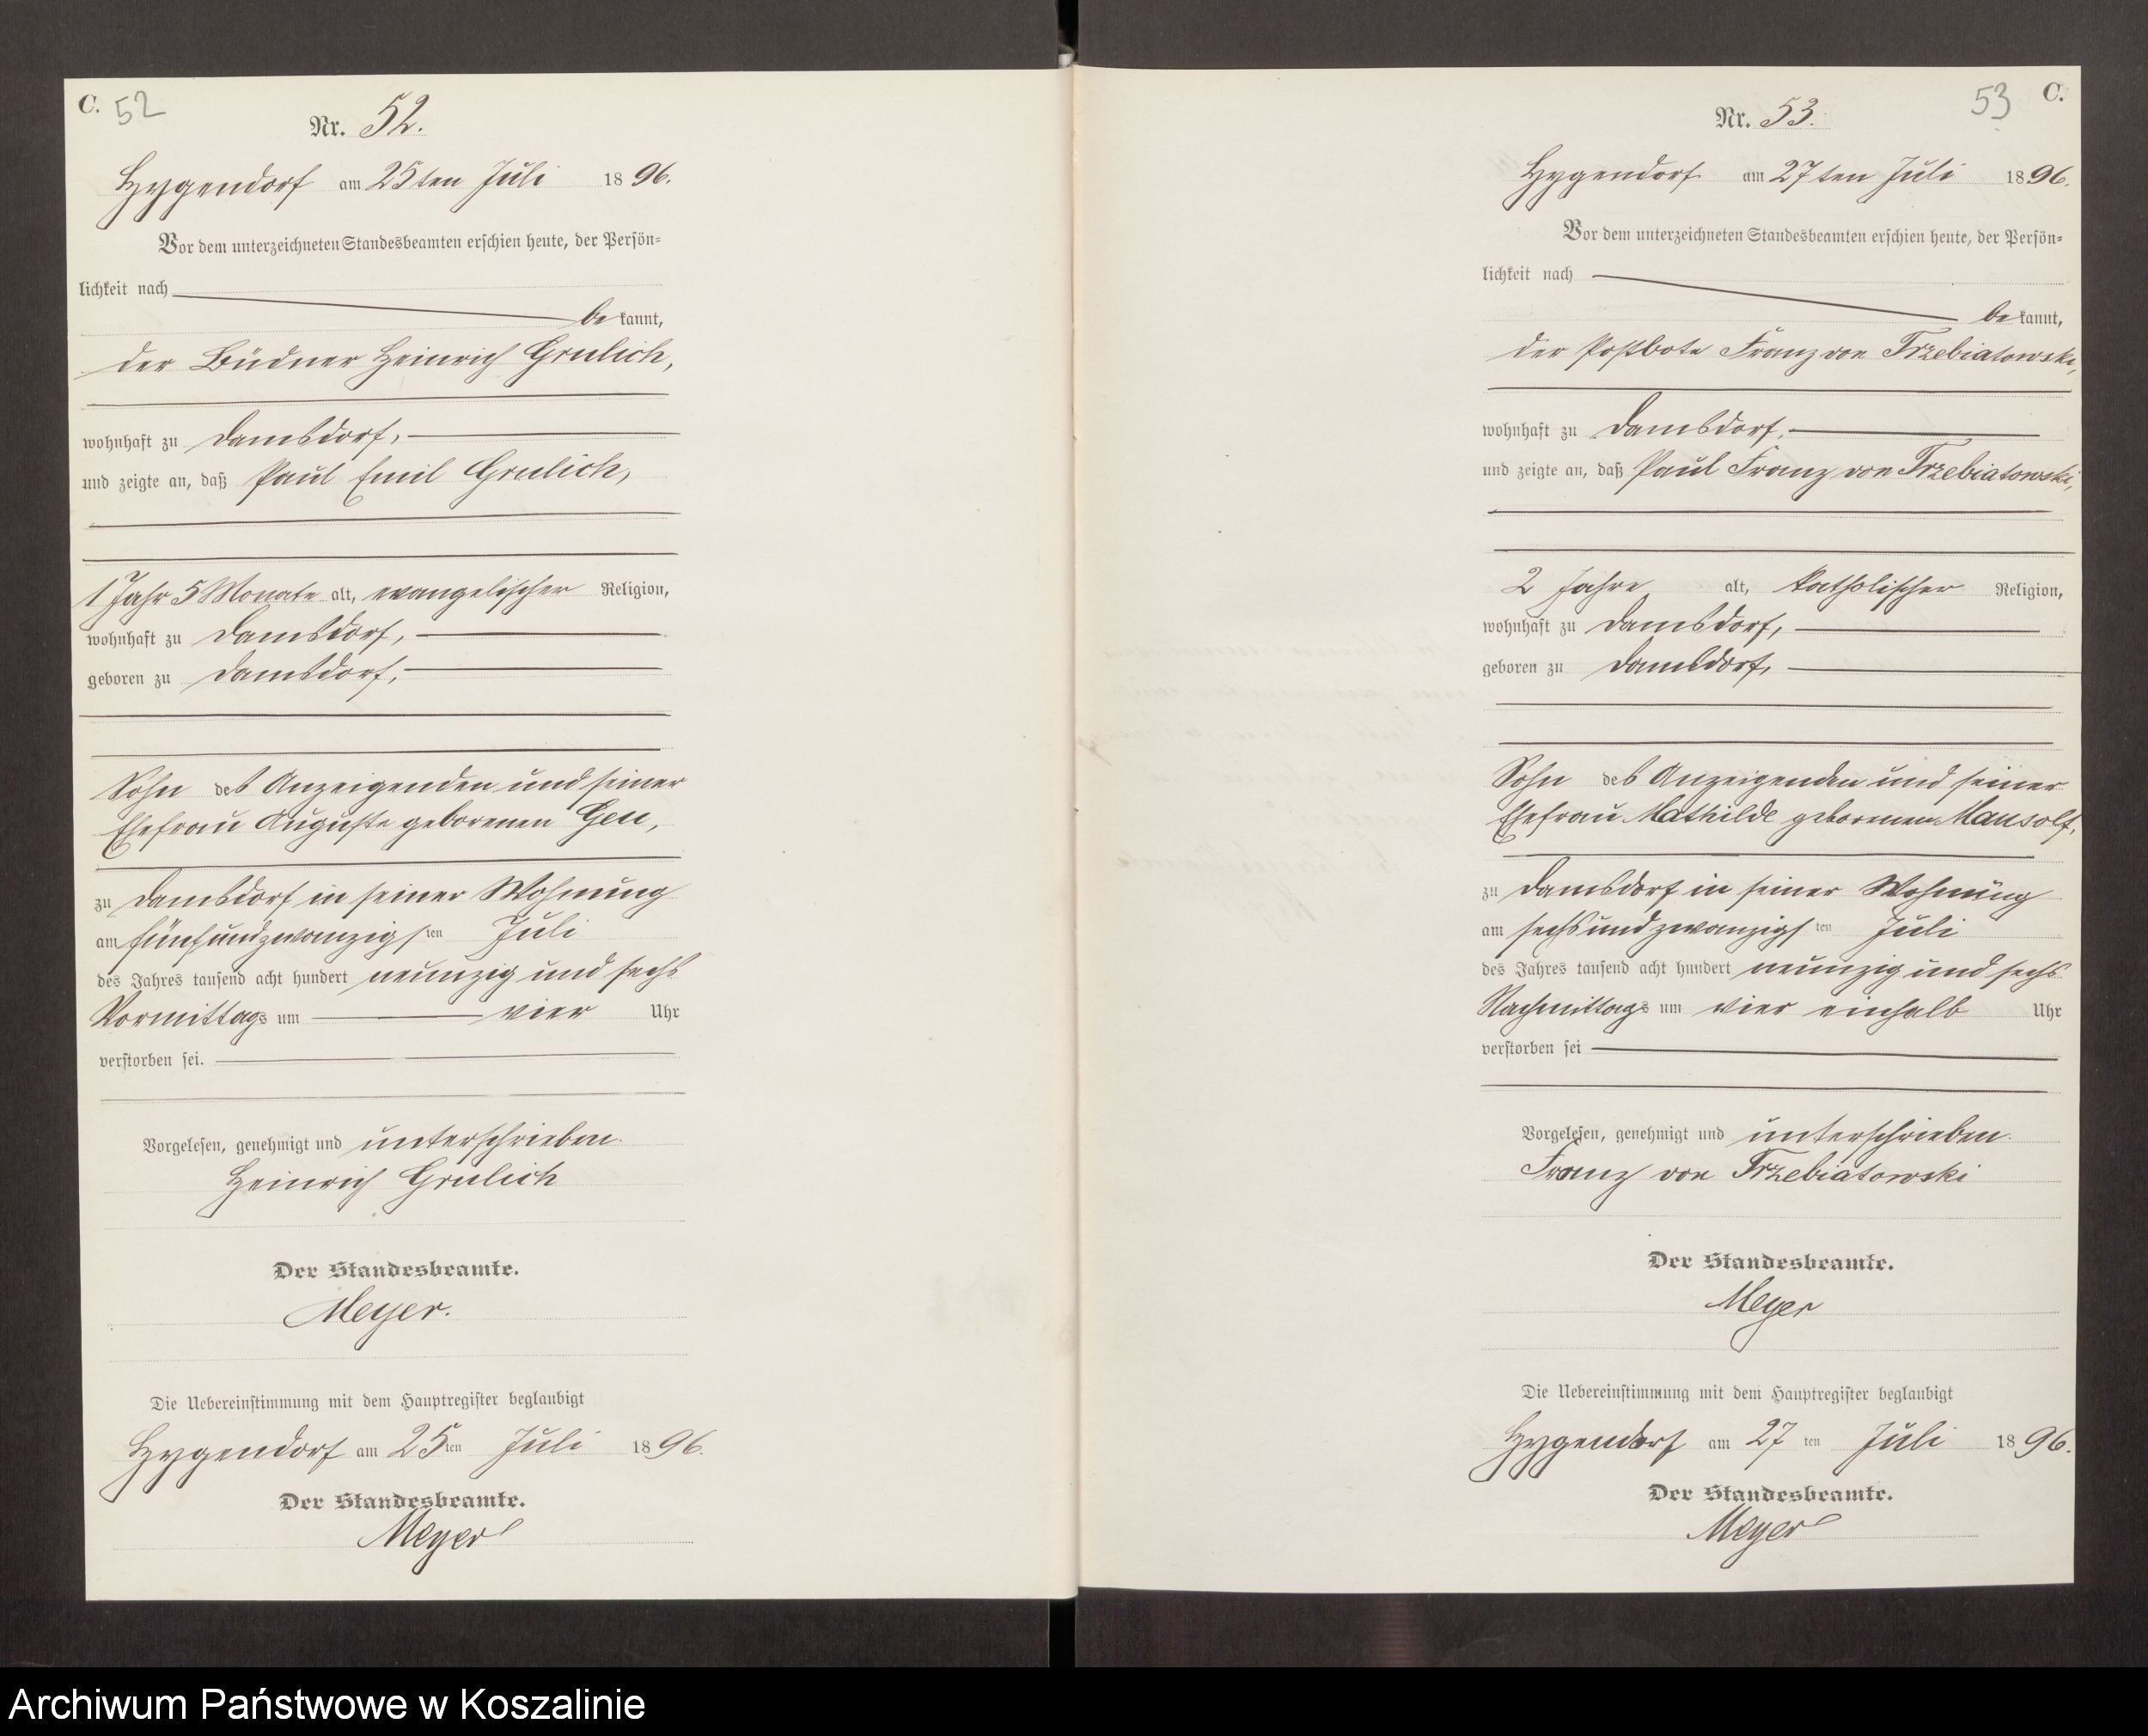 C. 52
Nr. 52.
Hygendorf am 25ten Juli 1896.
Vor dem unterzeichneten Standesbeamten erschien heute, der Persön=
lichkeit nach
bekannt,
der Büdner Heinrich Grulich,
wohnhaft zu Damsdorf,
und zeigte an, daß Paul Emil Grulich,
1 Jahr 5 Monate alt, evangelischer Religion,
wohnhaft zu Damsdorf,
geboren zu Damsdorf,
Sohn des Anzeigenden und seiner
Ehefrau Auguste geborenen
zu Damsdorf in seiner Wohnung
am fünfundzwanzigsten Juli
des Jahres tausend acht hundert neunzig und sechs
Vormittags um vier Uhr
verstorben sei.
Vorgelesen, genehmigt und unterschrieben.
Heinrich Grulich
Der Standesbeamte.
Meyer.
Die Uebereinstimmung mit dem Hauptregister beglaubigt
Hygendorf am 25ten Juli 1896.
Der Standesbeamte.
Meyer
53 C.
Nr. 53.
Hygendorf am 27ten Juli 1896.
Vor dem unterzeichneten Standesbeamten erschien heute, der Persön=
lichkeit nach
bekannt,
der Postbote Franz von Trzebiatowski,
wohnhaft zu Damsdorf,
und zeigte an, daß Paul Franz von Trzebiatowski,
2 Jahre alt, katholischer Religion,
wohnhaft zu Damsdorf,
geboren zu Damsdorf,
Sohn des Anzeigenden und seiner
Ehefrau Mathilde geborenen Mausolf,
zu Damsdorf in seiner Wohnung
am sechsundzwanzigsten Juli
des Jahres tausend acht hundert neunzig und sechs
Nachmittags um vier einhalb Uhr
verstorben sei
Vorgelesen, genehmigt und unterschrieben.
Franz von Trzebiatowski
Der Standesbeamte.
Meyer
Die Uebereinstimmung mit dem Hauptregister beglaubigt
Hygendorf am 27ten Juli 1896.
Der Standesbeamte.
Meyer
Archiwum Państwowe w Koszalinie